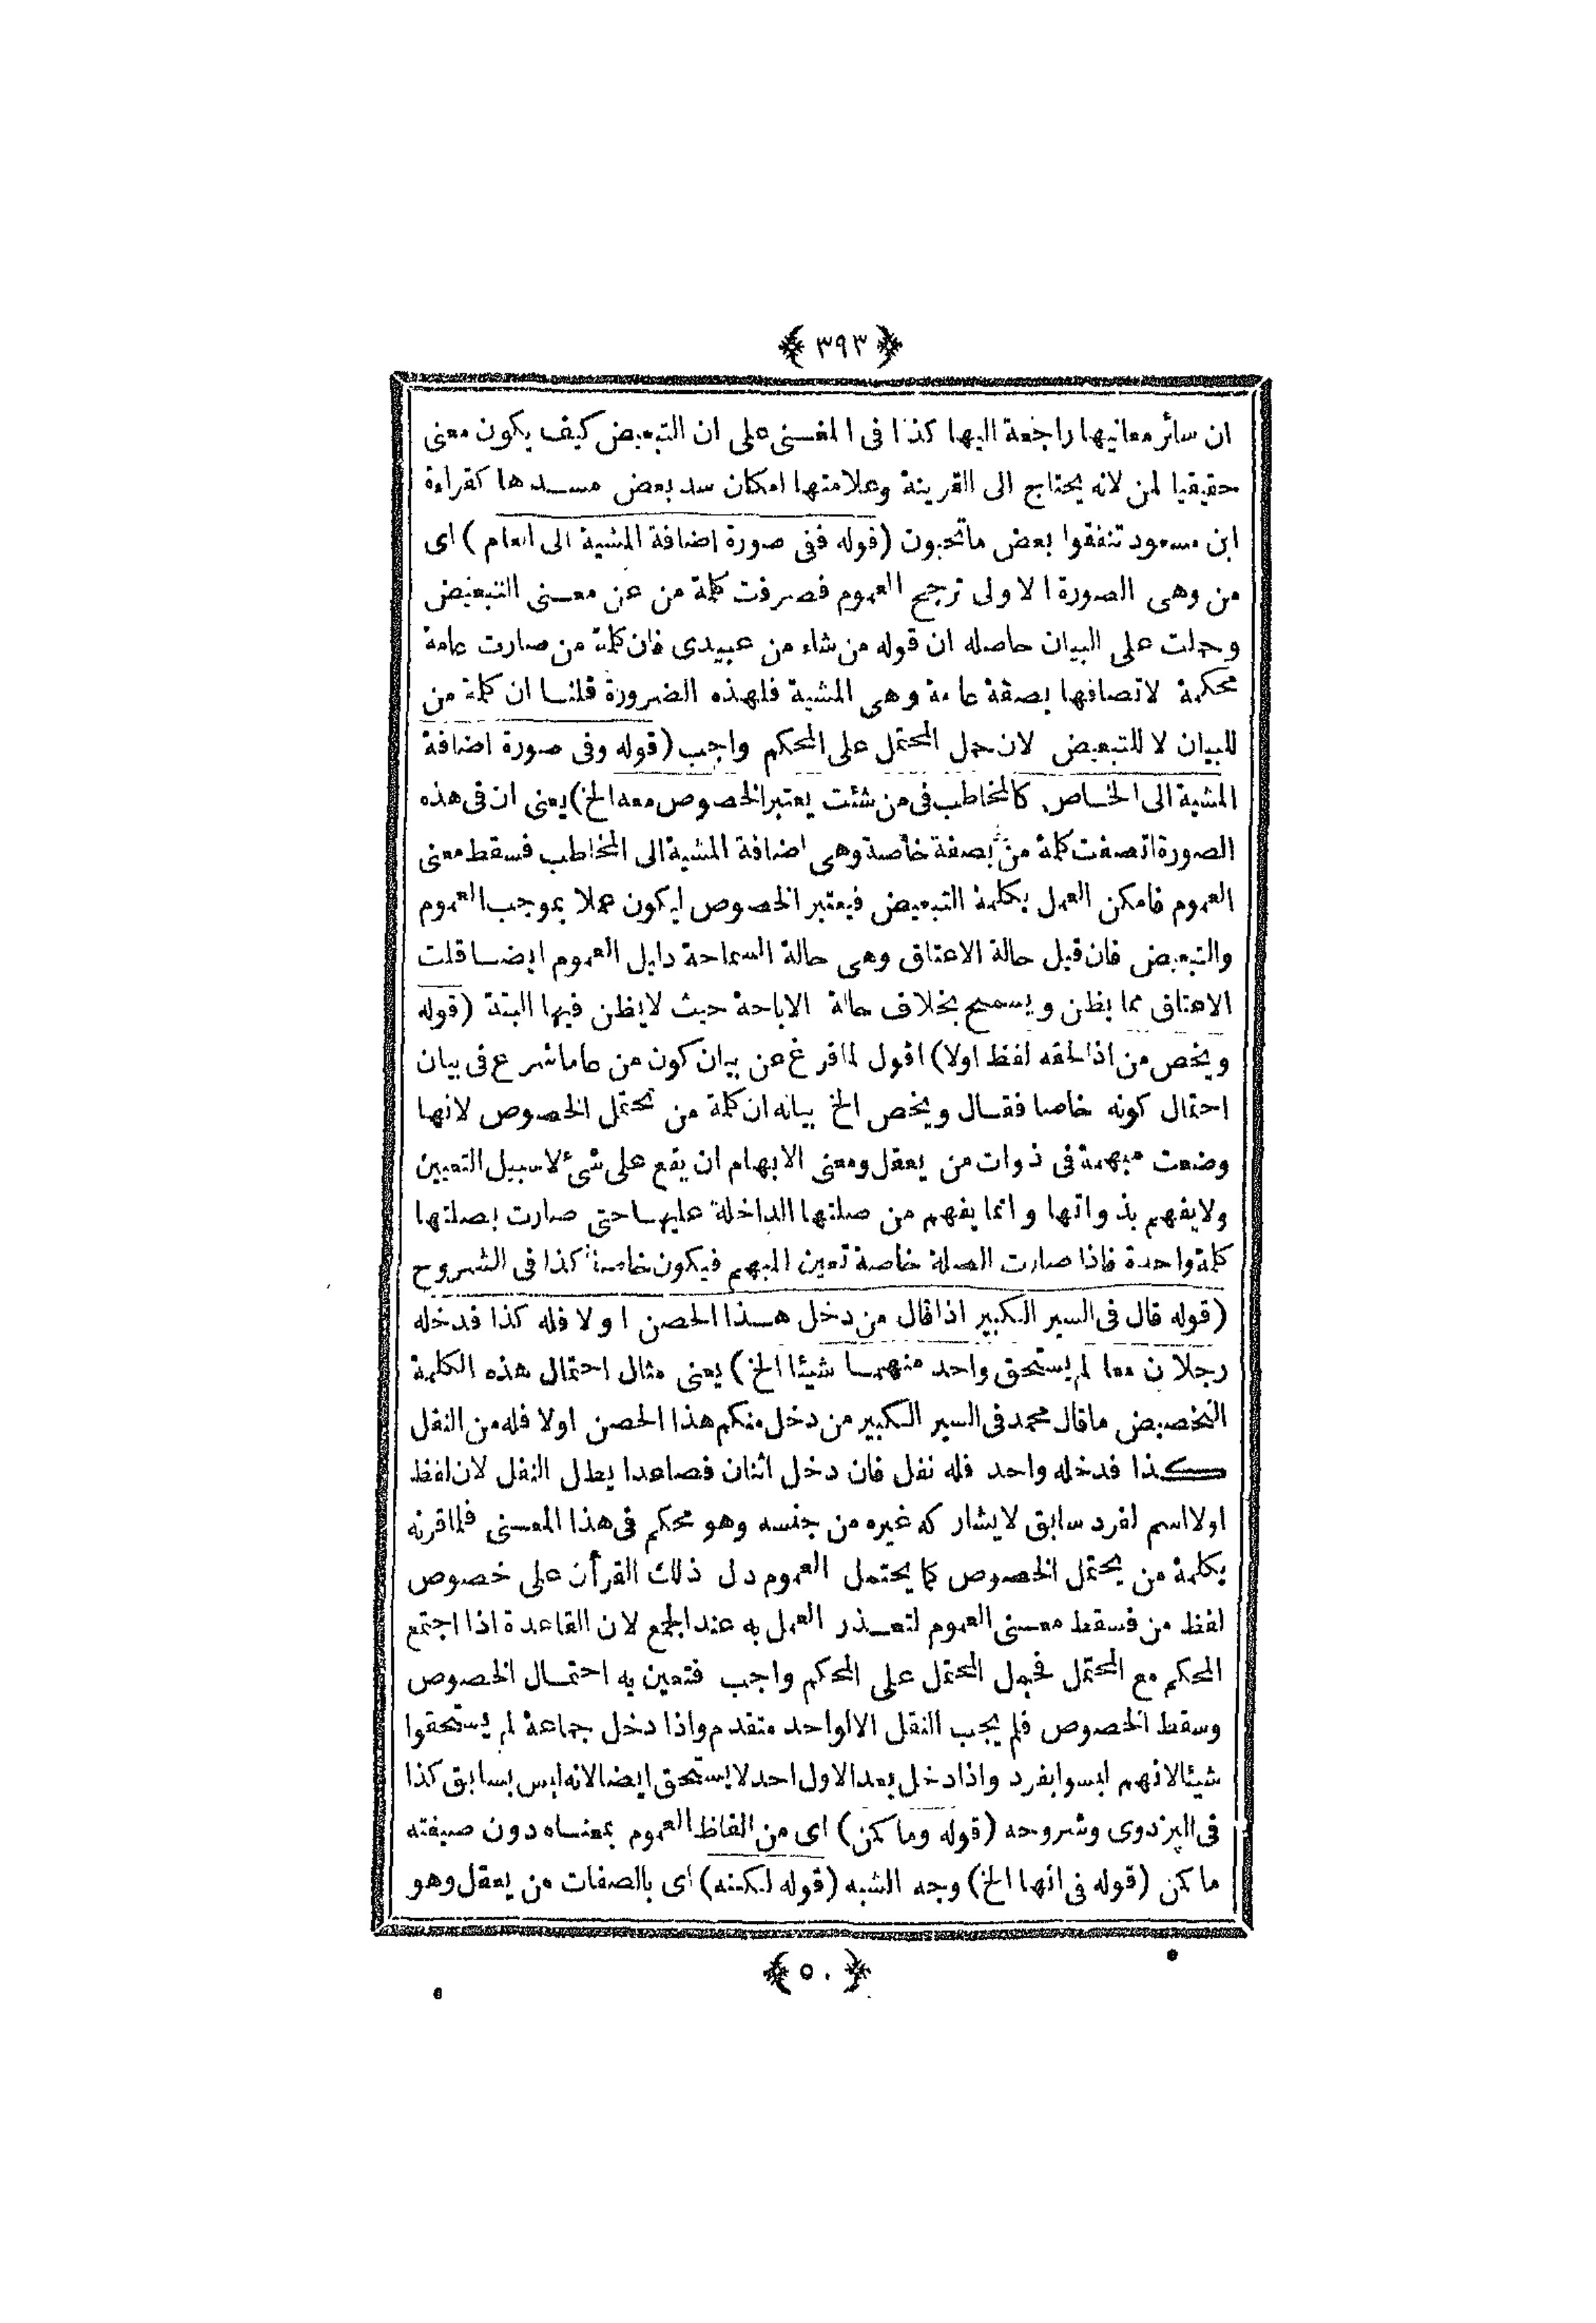 ﴿ ٣٩٣ ﴾
ان سائر معانيها راجعة اليها كذا فى المغنى على ان التبعيض كيف يكون معنى
حقيقيا لمن لانه يحتاج الى القرينة وعلامتها امكان سد بعض مسدها كقراءة
ابن مسعود تنفقوا بعض ماتحبون (قوله ففى صورة اضافة المشية الى العام) اى
من وهى الصورة الاولى ترجح العموم فصرفت كلمة من عن معنى التبعيض
وحملت على البيان حاصله ان قوله من شاء من عبيدى فان كلمة من صارت عامة
محكمة لاتصافها بصفة عامة وهى المشية فلهذه الضرورة قلنا ان كلمة من
للبيان لا للتبعيض لان حمل المحتمل على المحكم واجب (قوله وفى صورة اضافة
المشية الى الخاص كالمخاطب فى من شئت يعتبر الخصوص معه الخ) يعنى ان فى هذه
الصورة اتصفت كلمة من بصفة خاصة وهى اضافة المشية الى المخاطب فسقط معنى
العموم فامكن العمل بكلمة التبعيض فيعتبر الخصوص ليكون عملا بموجب العموم
والتبعيض فان قيل حالة الاعتاق وهى حالة السماحة دليل العموم ايضا قلت
الاعتاق مما يظن ويسمح بخلاف حالة الاباحة حيث لايظن فيها البتة (قوله
ويخص من اذا لحقه لفظ اولا) اقول لما فرغ عن بيان كون من عاما شرع فى بيان
احتمال كونه خاصا فقال ويخص الخ بيانه ان كلمة من تحتمل الخصوص لانها
وضعت مبهمة فى ذوات من يعقل ومعنى الابهام ان يقع على شئ لاسبيل التعيين
ولايفهم بذواتها وانما يفهم من صلتها الداخلة عليها حتى صارت بصلتها
كلمة واحدة فاذا صارت الصلة خاصة تعين المبهم فيكون خاصة كذا فى الشروح
(قوله قال فى السير الكبير اذا قال من دخل هذا الحصن اولا فله كذا فدخله
رجلان معا لم يستحق واحد منهما شيئا الخ) يعنى مثال احتمال هذه الكلمة
التخصيص ماقال محمد فى السير الكبير من دخل منكم هذا الحصن اولا فله من النفل
كذا فدخله واحد فله نفل فان دخل اثنان فصاعدا يطل النفل لان لفظ
اولا اسم لفرد سابق لايشاركه غيره من جنسه وهو محكم فى هذا المعنى فلما قرنه
بكلمة من يحتمل الخصوص كما يحتمل العموم دل ذلك القرأن على خصوص
لفظ من فسقط معنى العموم لتعذر العمل به عند الجمع لان القاعدة اذا اجتمع
المحكم مع المحتمل فحمل المحتمل على المحكم واجب فتعين به احتمال الخصوص
وسقط الخصوص فلم يجب النفل الا لواحد متقدم واذا دخل جماعة لم يستحقوا
شيئا لانهم ليسوا بفرد واذا دخل بعد الاول احد لايستحق ايضا لانه ليس بسابق كذا
فى البزدوى وشروحه (قوله وما كمن) اى من الفاظ العموم بمعناه دون صيغته
ما كمن (قوله فى انها الخ) وجه الشبه (قوله لكنه) اى بالصفات من يعقل وهو
﴿ ٥٠ ﴾